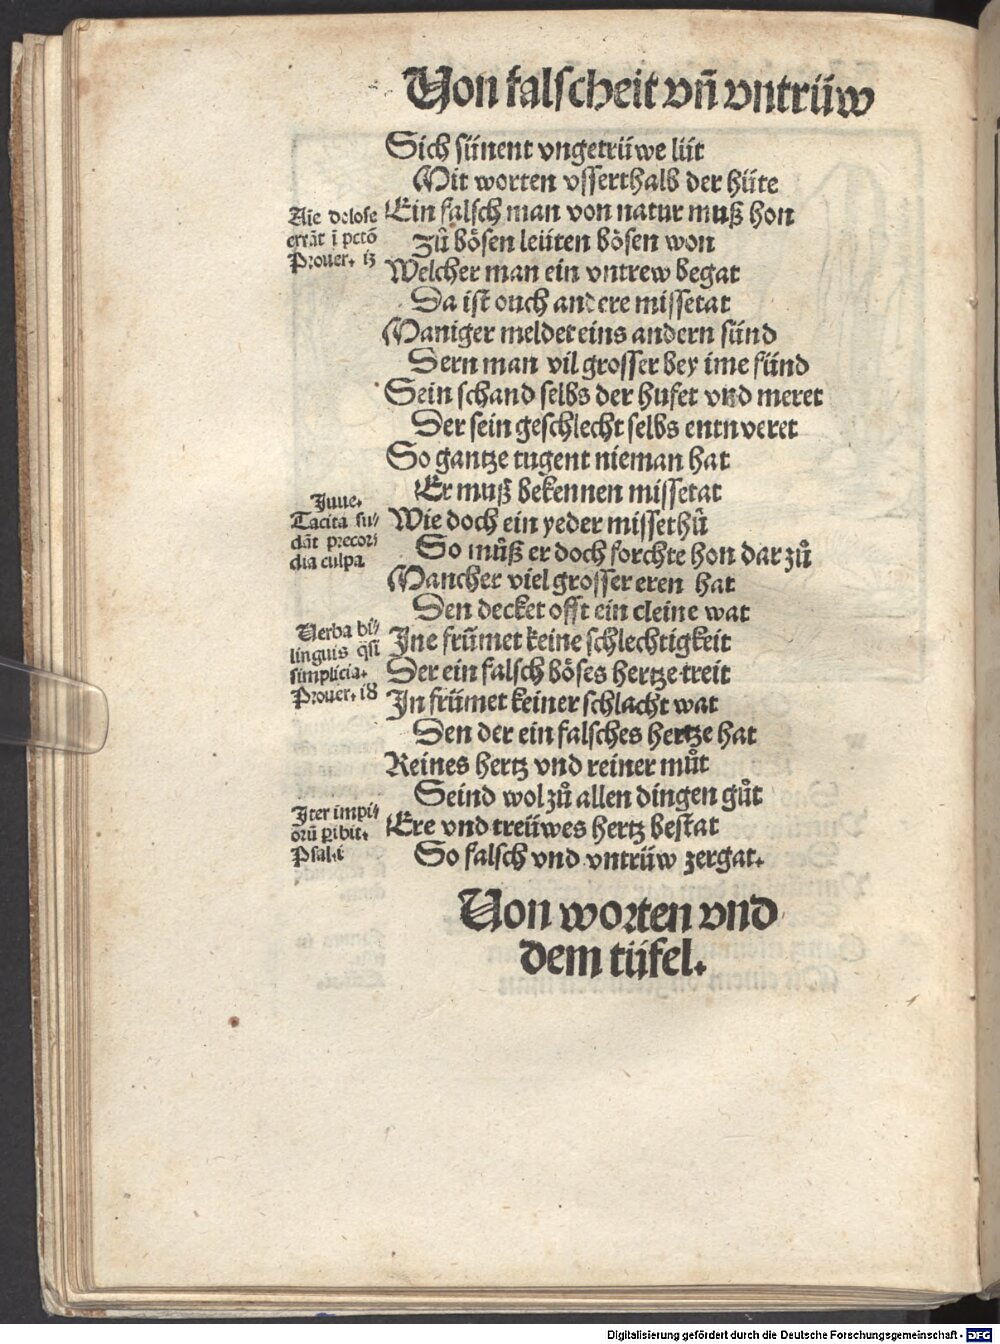 Von falscheit vñ vntrüw
Sich sünent vngetrüwe lüt
Mit worten vsserthalb der hüte
Aĩe dolose
errãt ĩ pctõ
Prouer. 13
Ein falsch man von natur muß hon
Zů bösen leüten bösen won
Welcher man ein vntrew begat
Da ist ouch andere missetat
Maniger meldet eins andern sünd
Dern man vil grosser bey ime fünd
Sein schand selbs der hufet vnd meret
Der sein geschlecht selbs entnveret
So gantze tugent nieman hat
Er muß bekennen missetat
Juue.
Tacita su/
dãt precor/
dia culpa
Wie doch ein yeder missethů
So můß er doch forchte hon dar zů
Mancher viel grosser eren hat
Den decket offt ein cleine wat
Verba bi/
linguis q̃si
simplicia.
Prouer. 18
Jne frümet keine schlechtigkeit
Der ein falsch böses hertze treit
Jn frümet keiner schlacht wat
Den der ein falsches hertze hat
Reines hertz vnd reiner můt
Seind wol zů allen dingen gůt
Jter impi/
orũ ꝑibit.
Psal. i
Ere vnd treüwes hertz bestat
So falsch vnd vntrüw zergat.
Von worten vnd
dem tüfel.
Digitalisierung gefördert durch die Deutsche Forschungsgemeinschaft - DFG